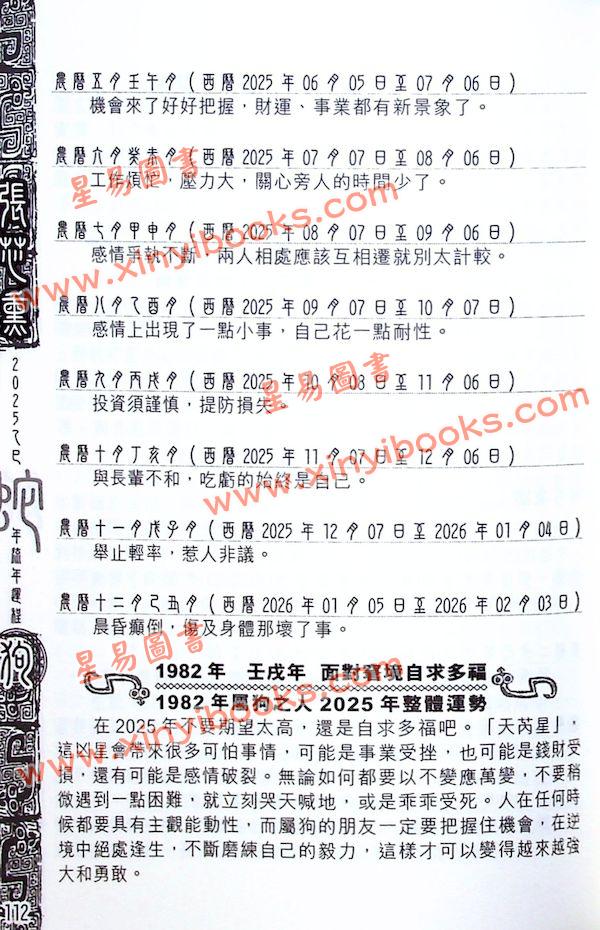 農曆五月壬午月(西曆2025年06月05日至07月06日)
機會來了好好把握，財運、事業都有新景象了。
農曆六月癸未月(西曆2025年07月07日至08月06日)
工作煩忙，壓力大，關心旁人的時間少了。
農曆七月甲申月(西曆2025年08月07日至09月06日)
感情爭執不斷，兩人相處應該互相遷就別太計較。
農曆八月乙酉月(西曆2025年09月07日至10月07日)
感情上出現了一點小事，自己花一點耐性。
農曆九月丙戌月(西曆2025年10月08日至11月06日)
投資須謹慎，提防損失。
農曆十月丁亥月(西曆2025年11月07日至12月06日)
與長輩不和，吃虧的始終是自己。
農曆十一月戊子月(西曆2025年12月07日至2026年01月04日)
舉止輕率，惹人非議。
農曆十二月己丑月(西曆2026年01月05日至2026年02月03日)
晨昏癲倒，傷及身體那壞了事。
1982年 壬戌年 面對窘境自求多福
1982年屬狗之人2025年整體運勢
在2025年不要期望太高，還是自求多福吧。「天芮星」，
這凶星會帶來很多可怕事情，可能是事業受挫，也可能是錢財受
損，還有可能是感情破裂。無論如何都要以不變應萬變，不要稍
微遇到一點困難，就立刻哭天喊地，或是乖乖受死。人在任何時
候都要具有主觀能動性，而屬狗的朋友一定要把握住機會，在逆
境中絕處逢生，不斷磨練自己的毅力，這樣才可以變得越來越強
大和勇敢。
張芯熏
2025乙巳
蛇
年流年運程
狗
112
星易圖書
www.xinyibooks.com
星易圖書
www.xinyibooks.com
星易圖書
www.xinyibooks.com